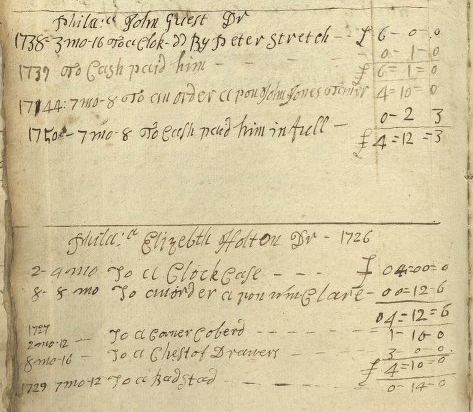 Phila:a John Guest Dr
1738-3 mo-16 To a Clok-dd By Peter Stretch -- £ 6-0-0
0-1-0
1739 To Cash paid him - £ 6=1=0
1744: 7mo-8 To an order a pon John Jones 4=10=0
0-2 3
1750- 7 mo-8 To Cash paid him in full - £ 4=12=3
Phila:a Elizebth Holton Dr - 1726
2-4mo To a Clock Case --- £ 04=00=0
8-8 mo To an order a pon wm Clare- 00=12-6
04=12=6
1727
2mo-12 -- To a Coner Coberd ---- 1-10-0
8mo-16 - To a Chest of Drawers 3-0-0
£ 4=10=0
1729 7mo-12 To a Bad Stad -- 0-14-0